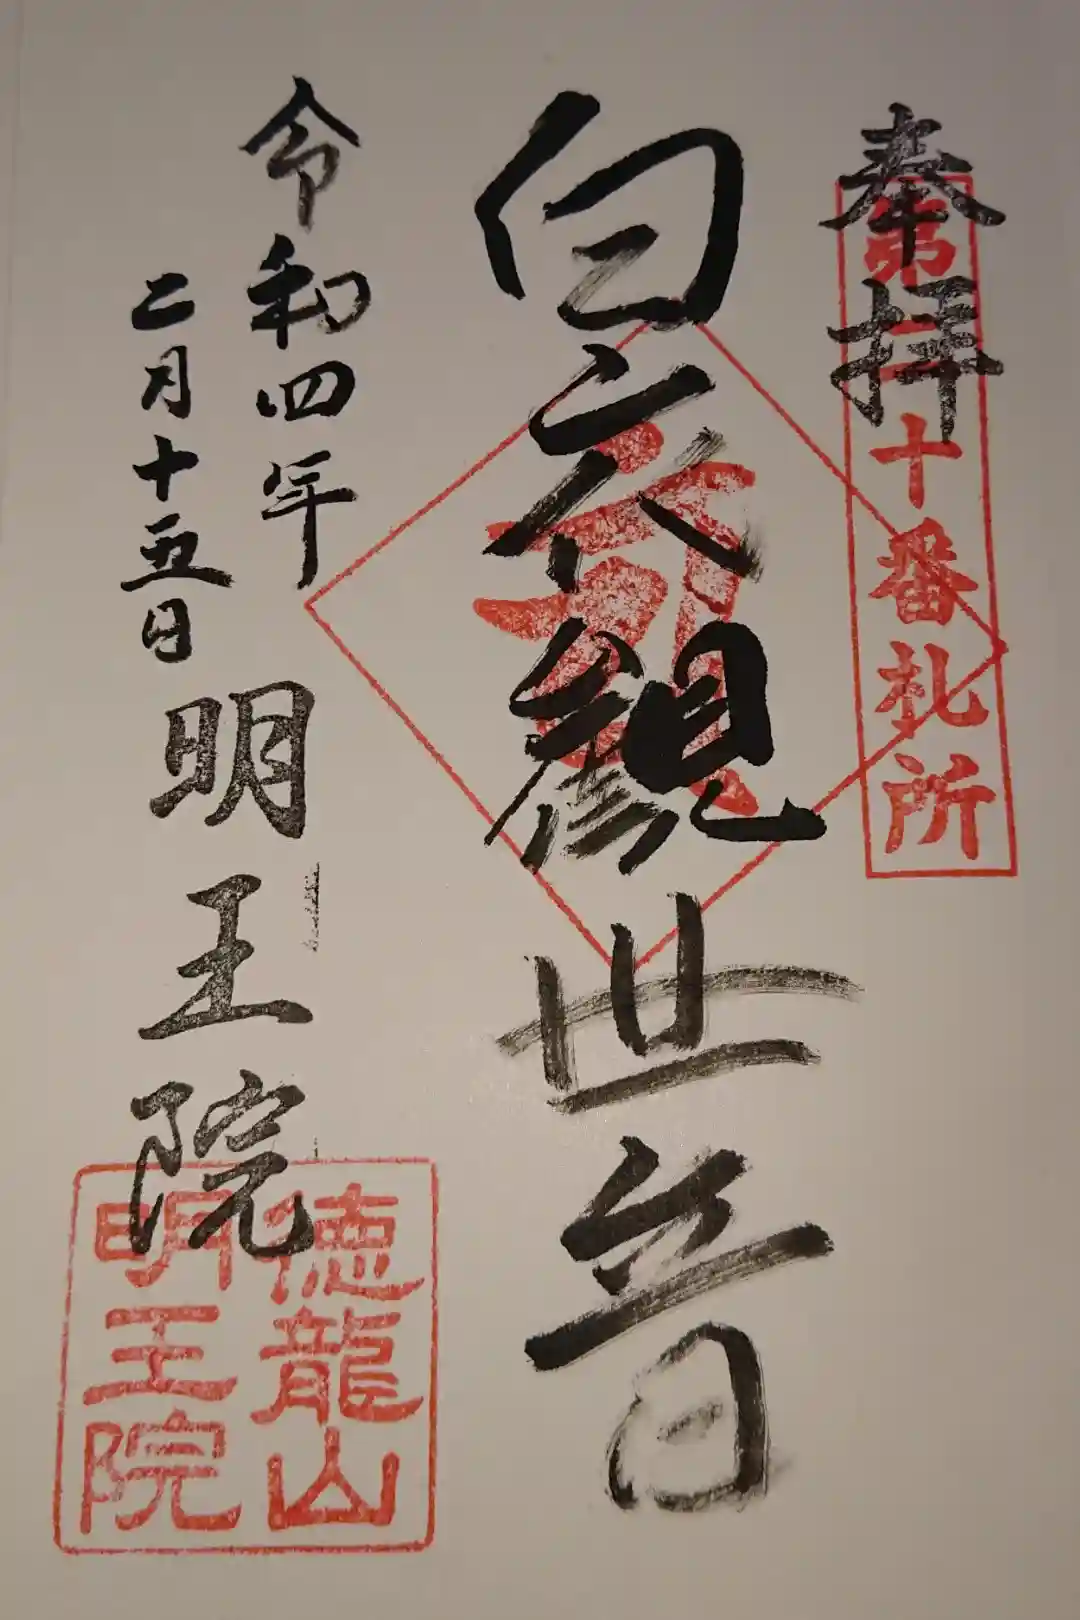 奉拝
第
十番札所
白衣觀世音
令和四年
二月十五日
明王院
徳龍山
明王院